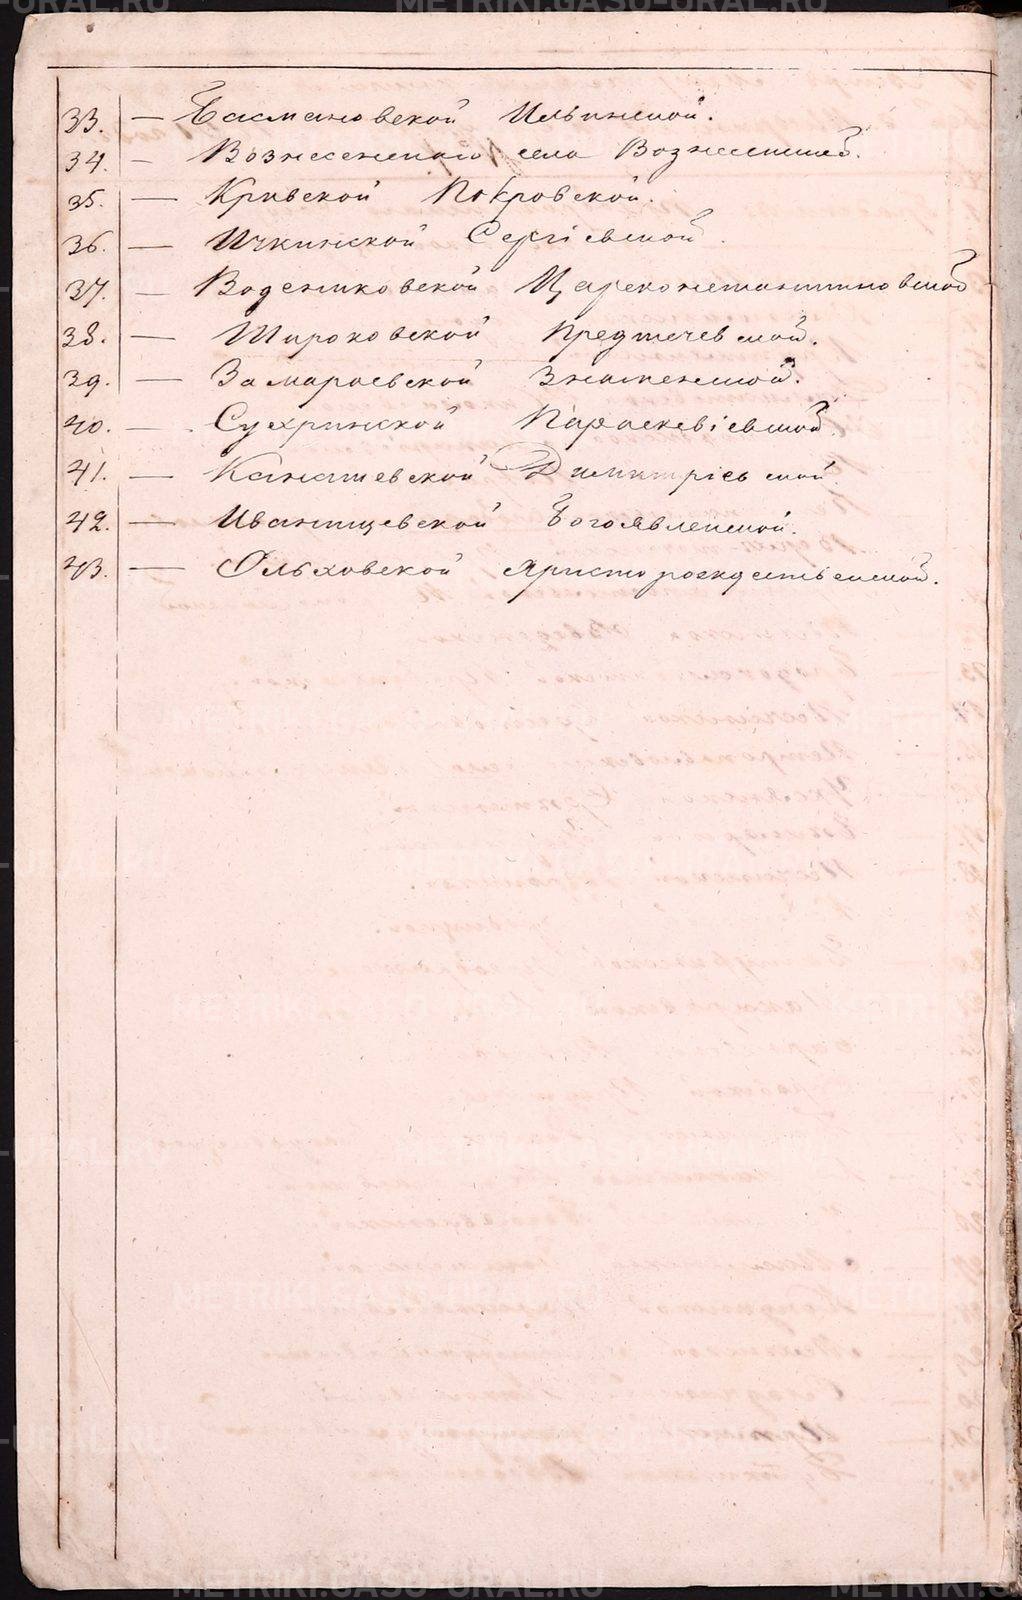 33. — Басмановской Ильинской.
34. — Вознесенскаго села Вознесенской.
35. — Кривской Покровской.
36. — Ичкинской Сергіевской.
37. — Водениковской Цареконстантиновской
38. — Широковской Предтечевской.
39. — Замараевской Знаменской.
40. — Сухринской Параскевіевской.
41. — Канашевской Димитріевской.
42. — Иванищевской Богоявленской.
43. — Ольховской Христорождественской.
METRIKI.GASO-URAL.RU